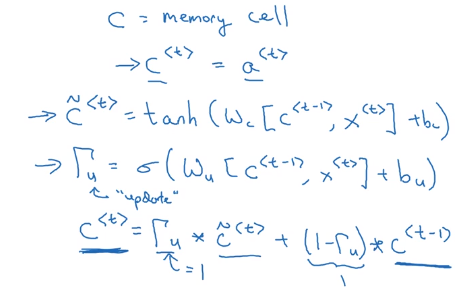 C = memory cell
→ C^{<t>} = a^{<t>}
→ C̃^{<t>} = tanh (W_c [C^{<t-1>}, x^{<t>}] + b_c)
→ Γ_u = σ (W_u [C^{<t-1>}, x^{<t>}] + b_u)
"update"
C^{<t>} = Γ_u * C̃^{<t>} + (1-Γ_u) * C^{<t-1>}
= 1
1